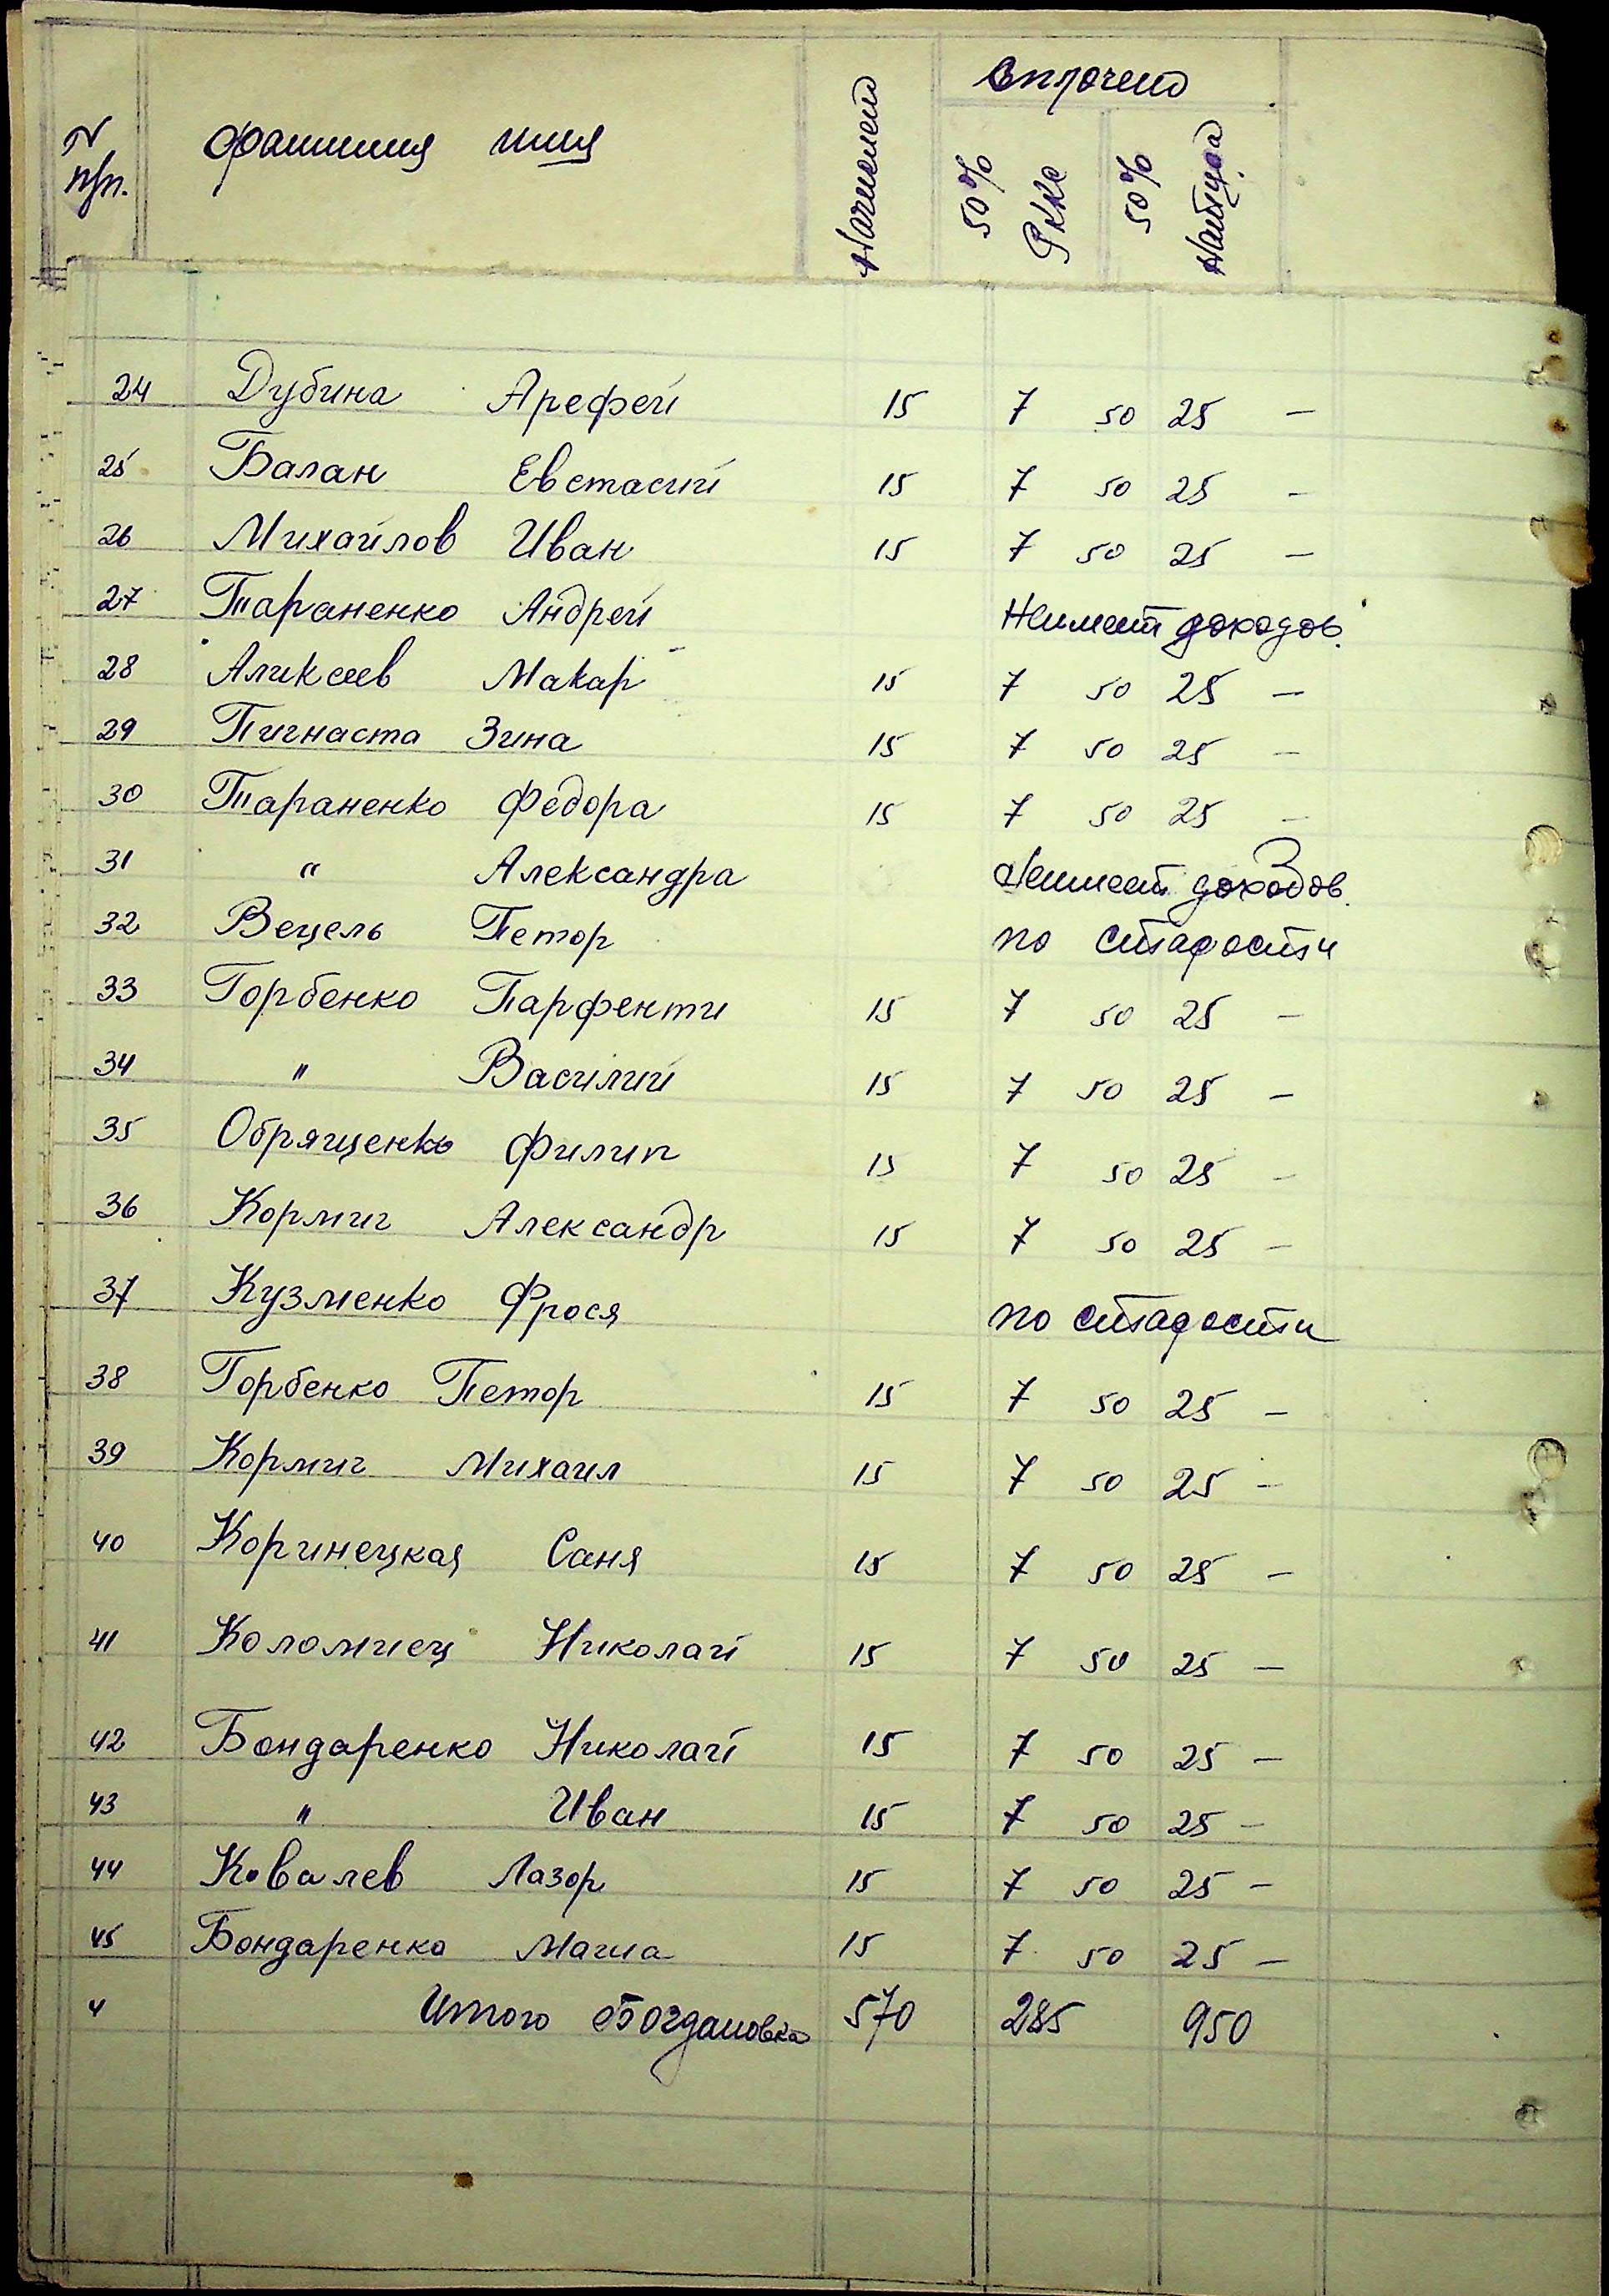 N п/п. фамилия имя Начислено Оплочено
50% РККС 50% Натура
24 Дубина Арефей 15 7 50 25 —
25 Балан Евстасий 15 7 50 25 —
26 Михайлов Иван 15 7 50 25 —
27 Тараненко Андрей Неимеет доходов.
28 Аликсеев Макар 15 7 50 25 —
29 Пигнаста Зина 15 7 50 25 —
30 Тараненко Федора 15 7 50 25 —
31 " Александра Неимеет доходов.
32 Вецель Петор по старости
33 Горбенко Парфенти 15 7 50 25 —
34 " Василий 15 7 50 25 —
35 Обрященко Филип 15 7 50 25 —
36 Кормиг Александр 15 7 50 25 —
37 Кузменко Фрося по старости
38 Горбенко Петор 15 7 50 25 —
39 Кормиг Михаил 15 7 50 25 —
40 Коринецкая Саня 15 7 50 25 —
41 Коломиец Николай 15 7 50 25 —
42 Бондаренко Николай 15 7 50 25 —
43 " Иван 15 7 50 25 —
44 Ковалев Лазор 15 7 50 25 —
45 Бондаренко 15 7 50 25 —
Итого Богдановка 570 285 950